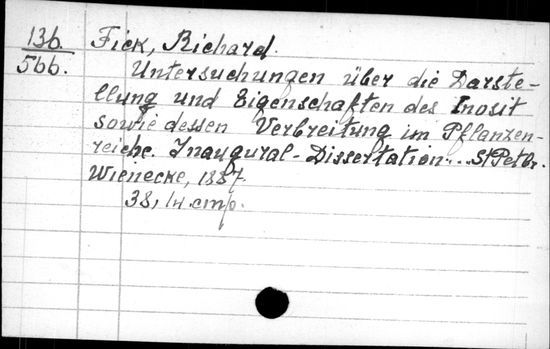 136. Fick, Richard.
566. Untersuchungen über die Darste-
llung und Eigenschaften des Inosit
sowie dessen Verbreitung im Pflanzen-
reiche. Inaugural-Dissertation... StPetbr.
Wienecke, 1887.
38, 1н. стр.